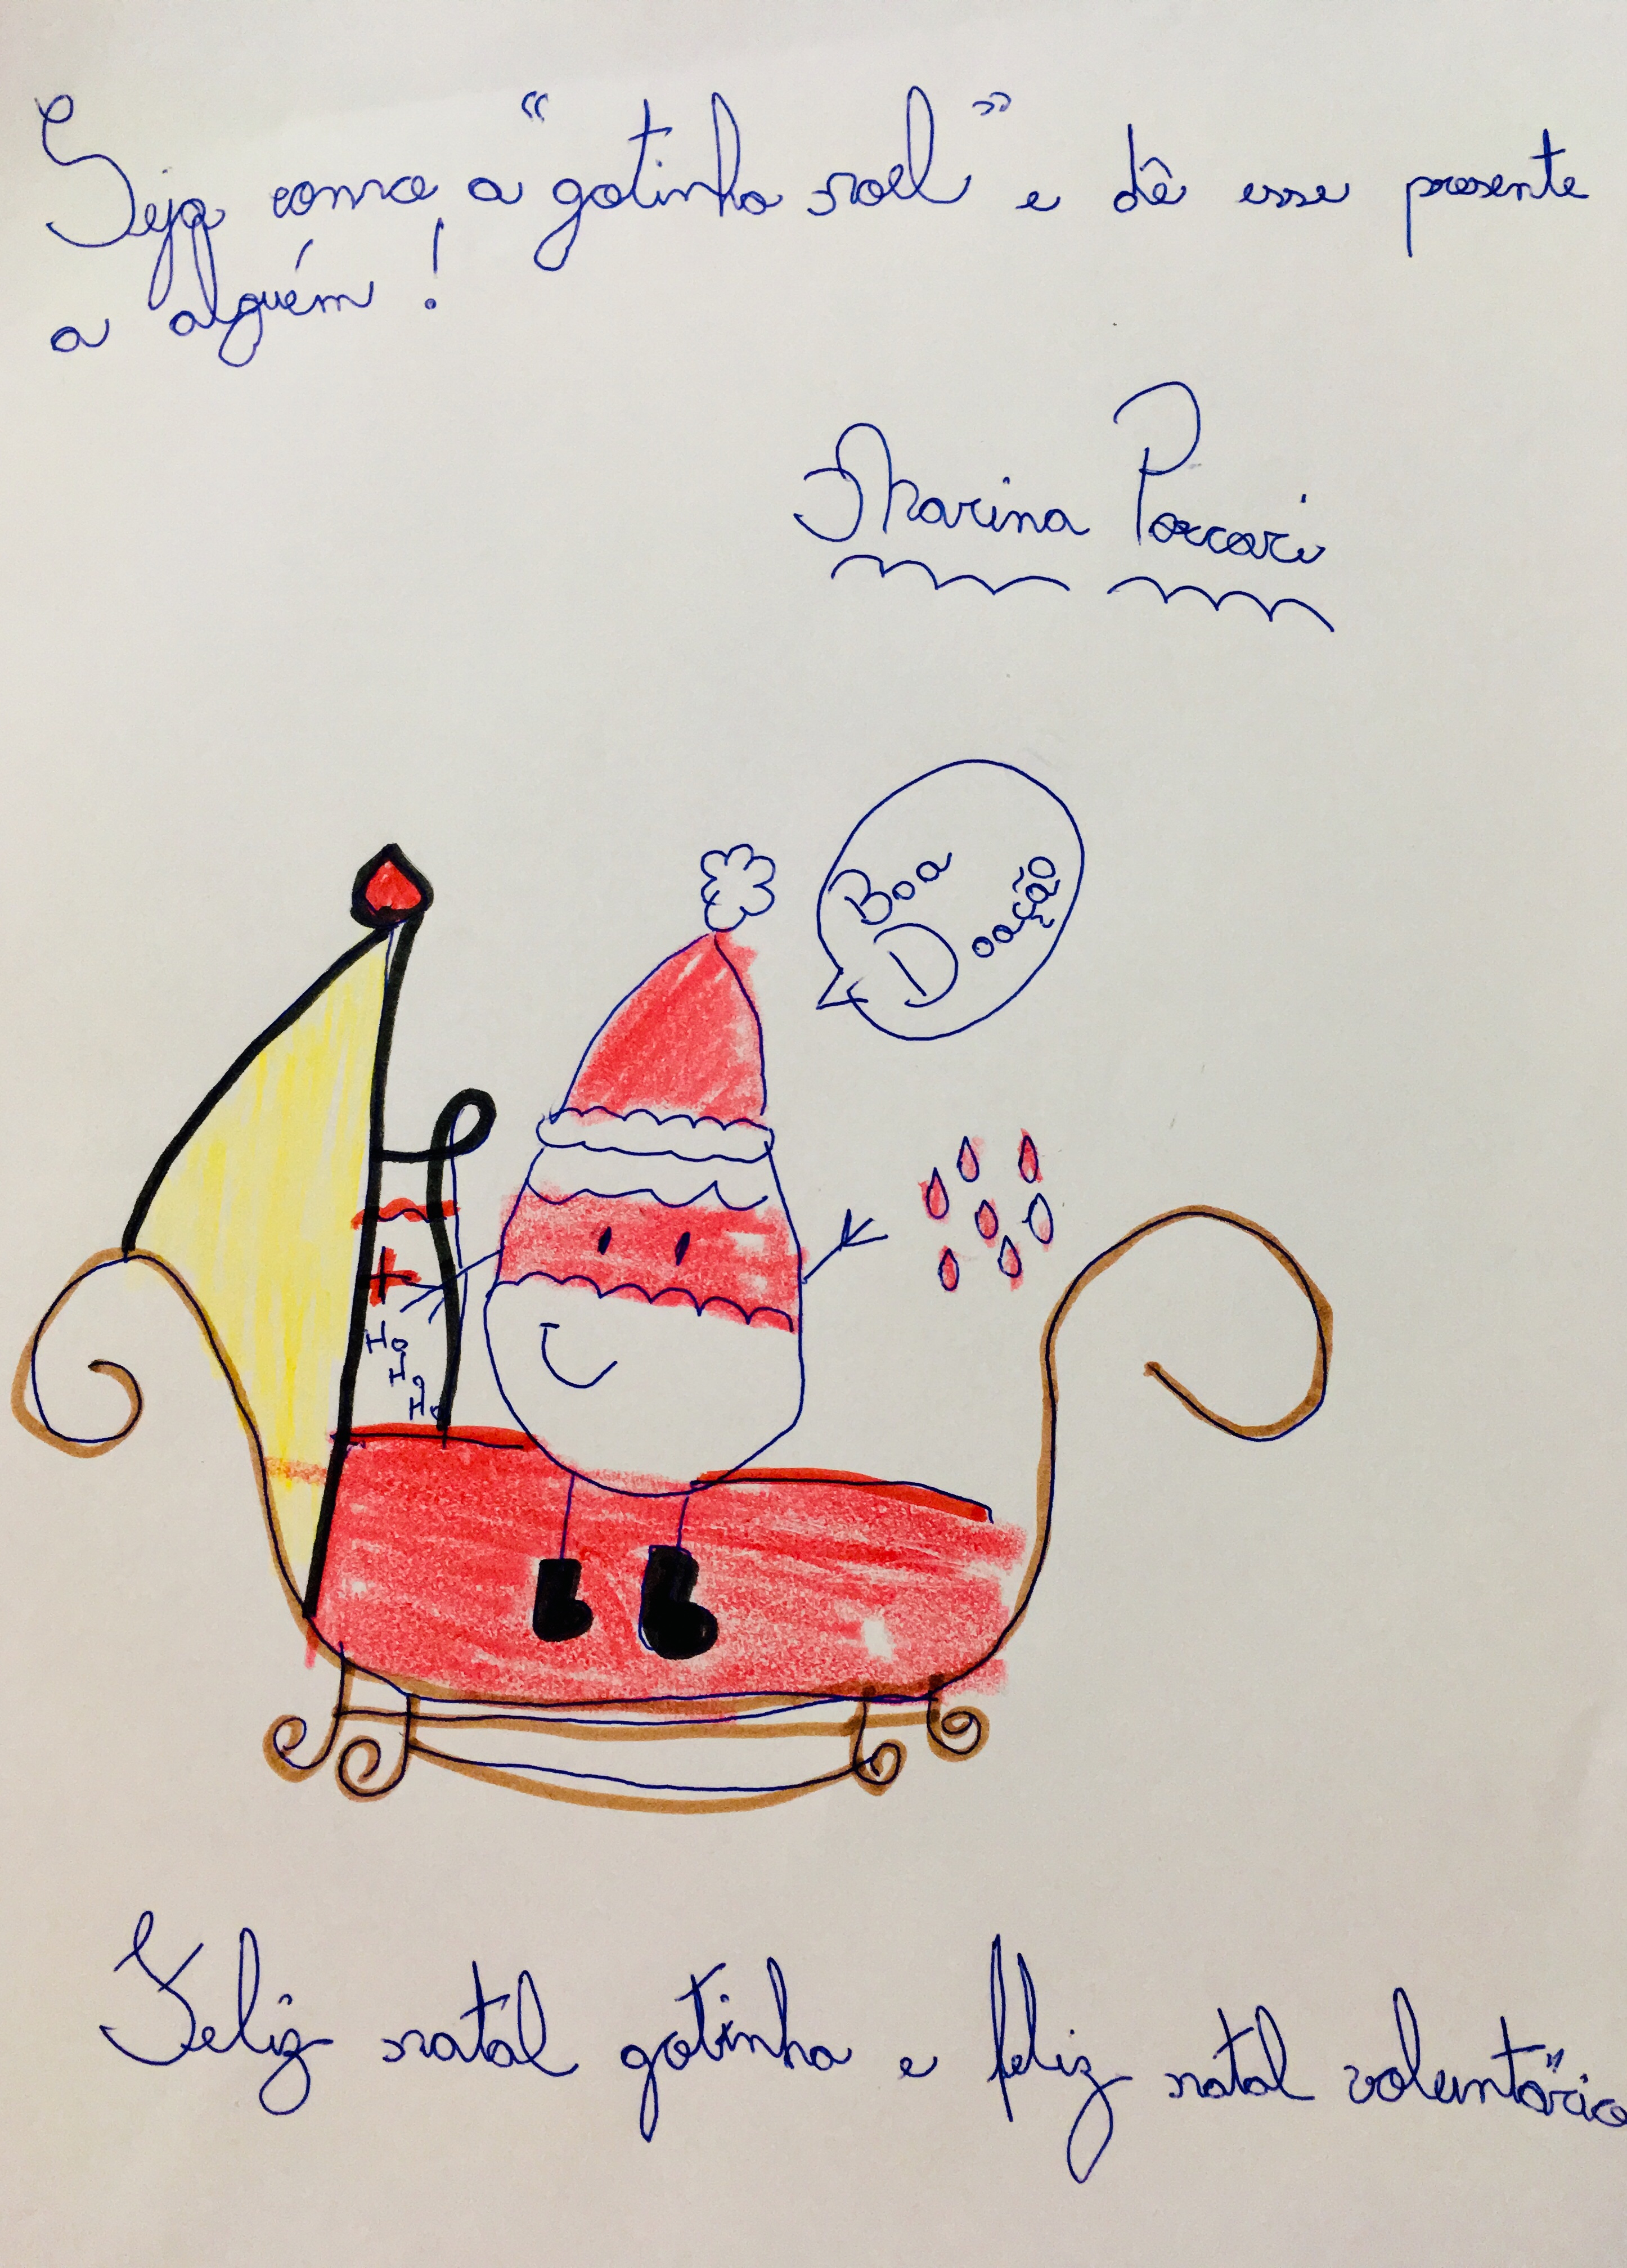 Seja como a "gotinha noel" e dê esse presente
a alguém!
Marina Porcari
Boa
Doação
Ho
Ho
Ho
Feliz natal gotinha e feliz natal voluntário